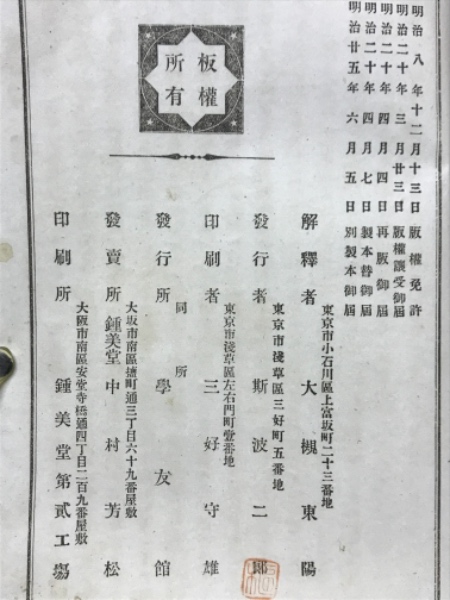 明治八年十二月十三日版權免許
明治二十年三月廿三日版權讓受御屆
明治二十年四月四日再版御屆
明治二十年四月七日製本替御屆
明治廿五年六月五日別製本御屆
板權
所有
東京市小石川區上富坂町二十三番地
解釋者 大槻東陽
東京市淺草區三好町五番地
發行者 斯波二郞
東京市淺草區左右門町壹番地
印刷者 三好守雄
同所
發行所 學友館
大坂市南區鹽町通三丁目六十九番屋敷
發賣所 鍾美堂中村芳松
大阪市南區安堂寺橋通四丁目二百九番屋敷
印刷所 鍾美堂第貳工場